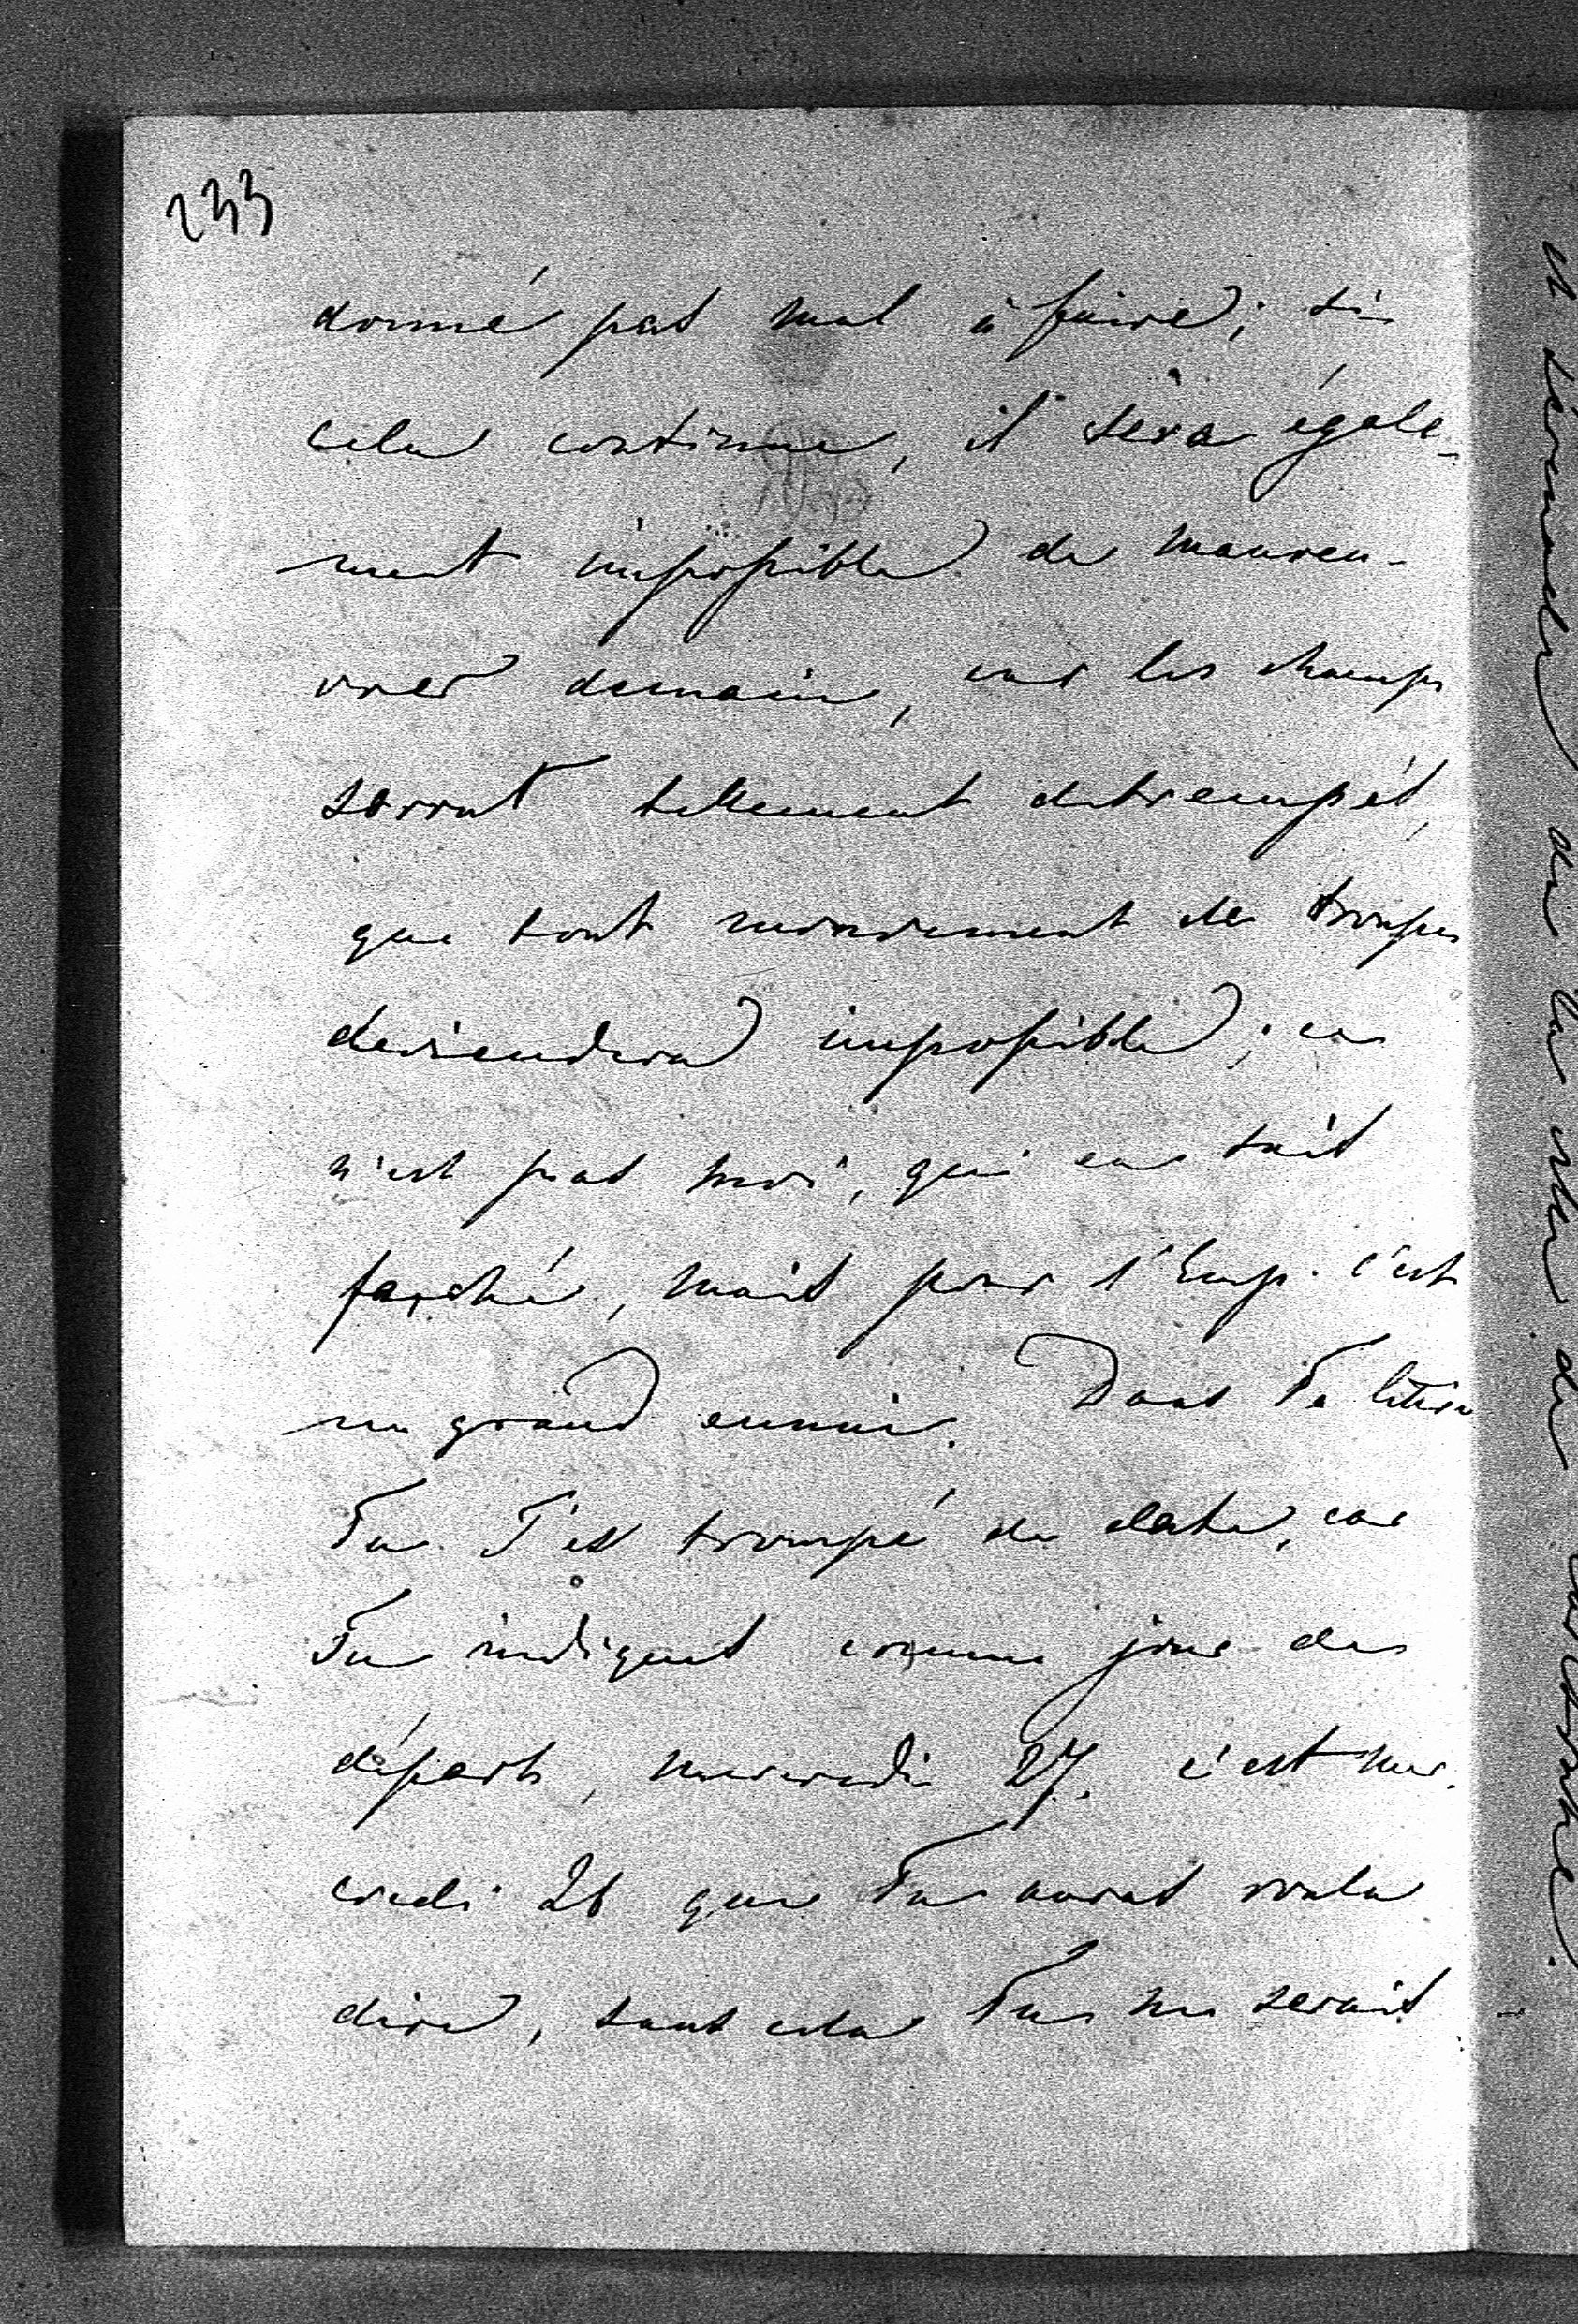 233
donné pas mal à faire; si
cela continue, il sera égale-
ment impossible de manoeu-
vrer demain, car les champs
seront tellement detrempés,
que tout mouvement de troupes
deviendra impossible; ce
n'est pas moi, qui en sait
faché, mais pour l'Emp. c'est
un grand ennui. Dans Ta lettre
Tu T'es trompé de date, car
Tu indiques comme jour de
départ, mercredi 27. c'est mer-
credi 26 que Tu auras voulu
dire, sans cela Tu ne serais